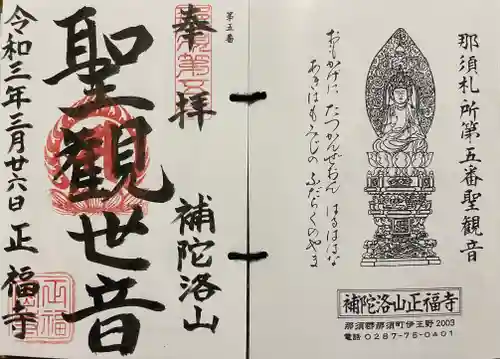 那須札所第五番聖観音
おもかげに たつかんぜおん はるははな
あきはもみじの ふだらくのやま
補陀洛山正福寺
那須郡那須町伊王野2003
電話0287-75-0401
第五番
奉拝
補陀洛山
聖観世音
正福寺
令和三年三月廿六日